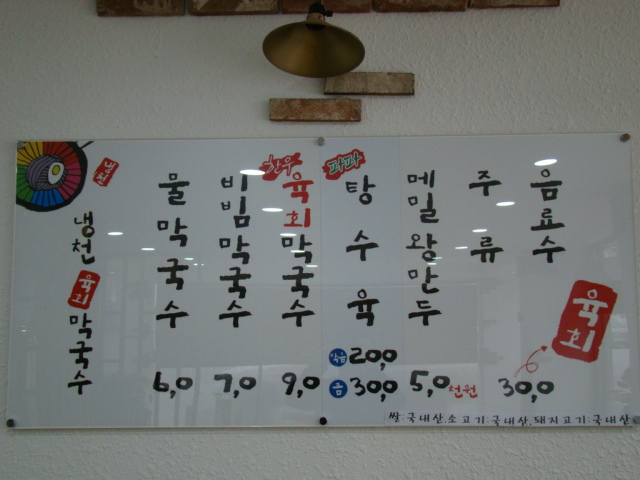 냉천
냉천
육회
막국수
물막국수
6,0
비빔막국수
7,0
한우
육회막국수
9,0
파파
탕수육
200,0
금 300,0
메밀왕만두
5,0천원
주류
음료수
육회
30,0
쌀:국내산,소고기:국내산,돼지고기:국내산